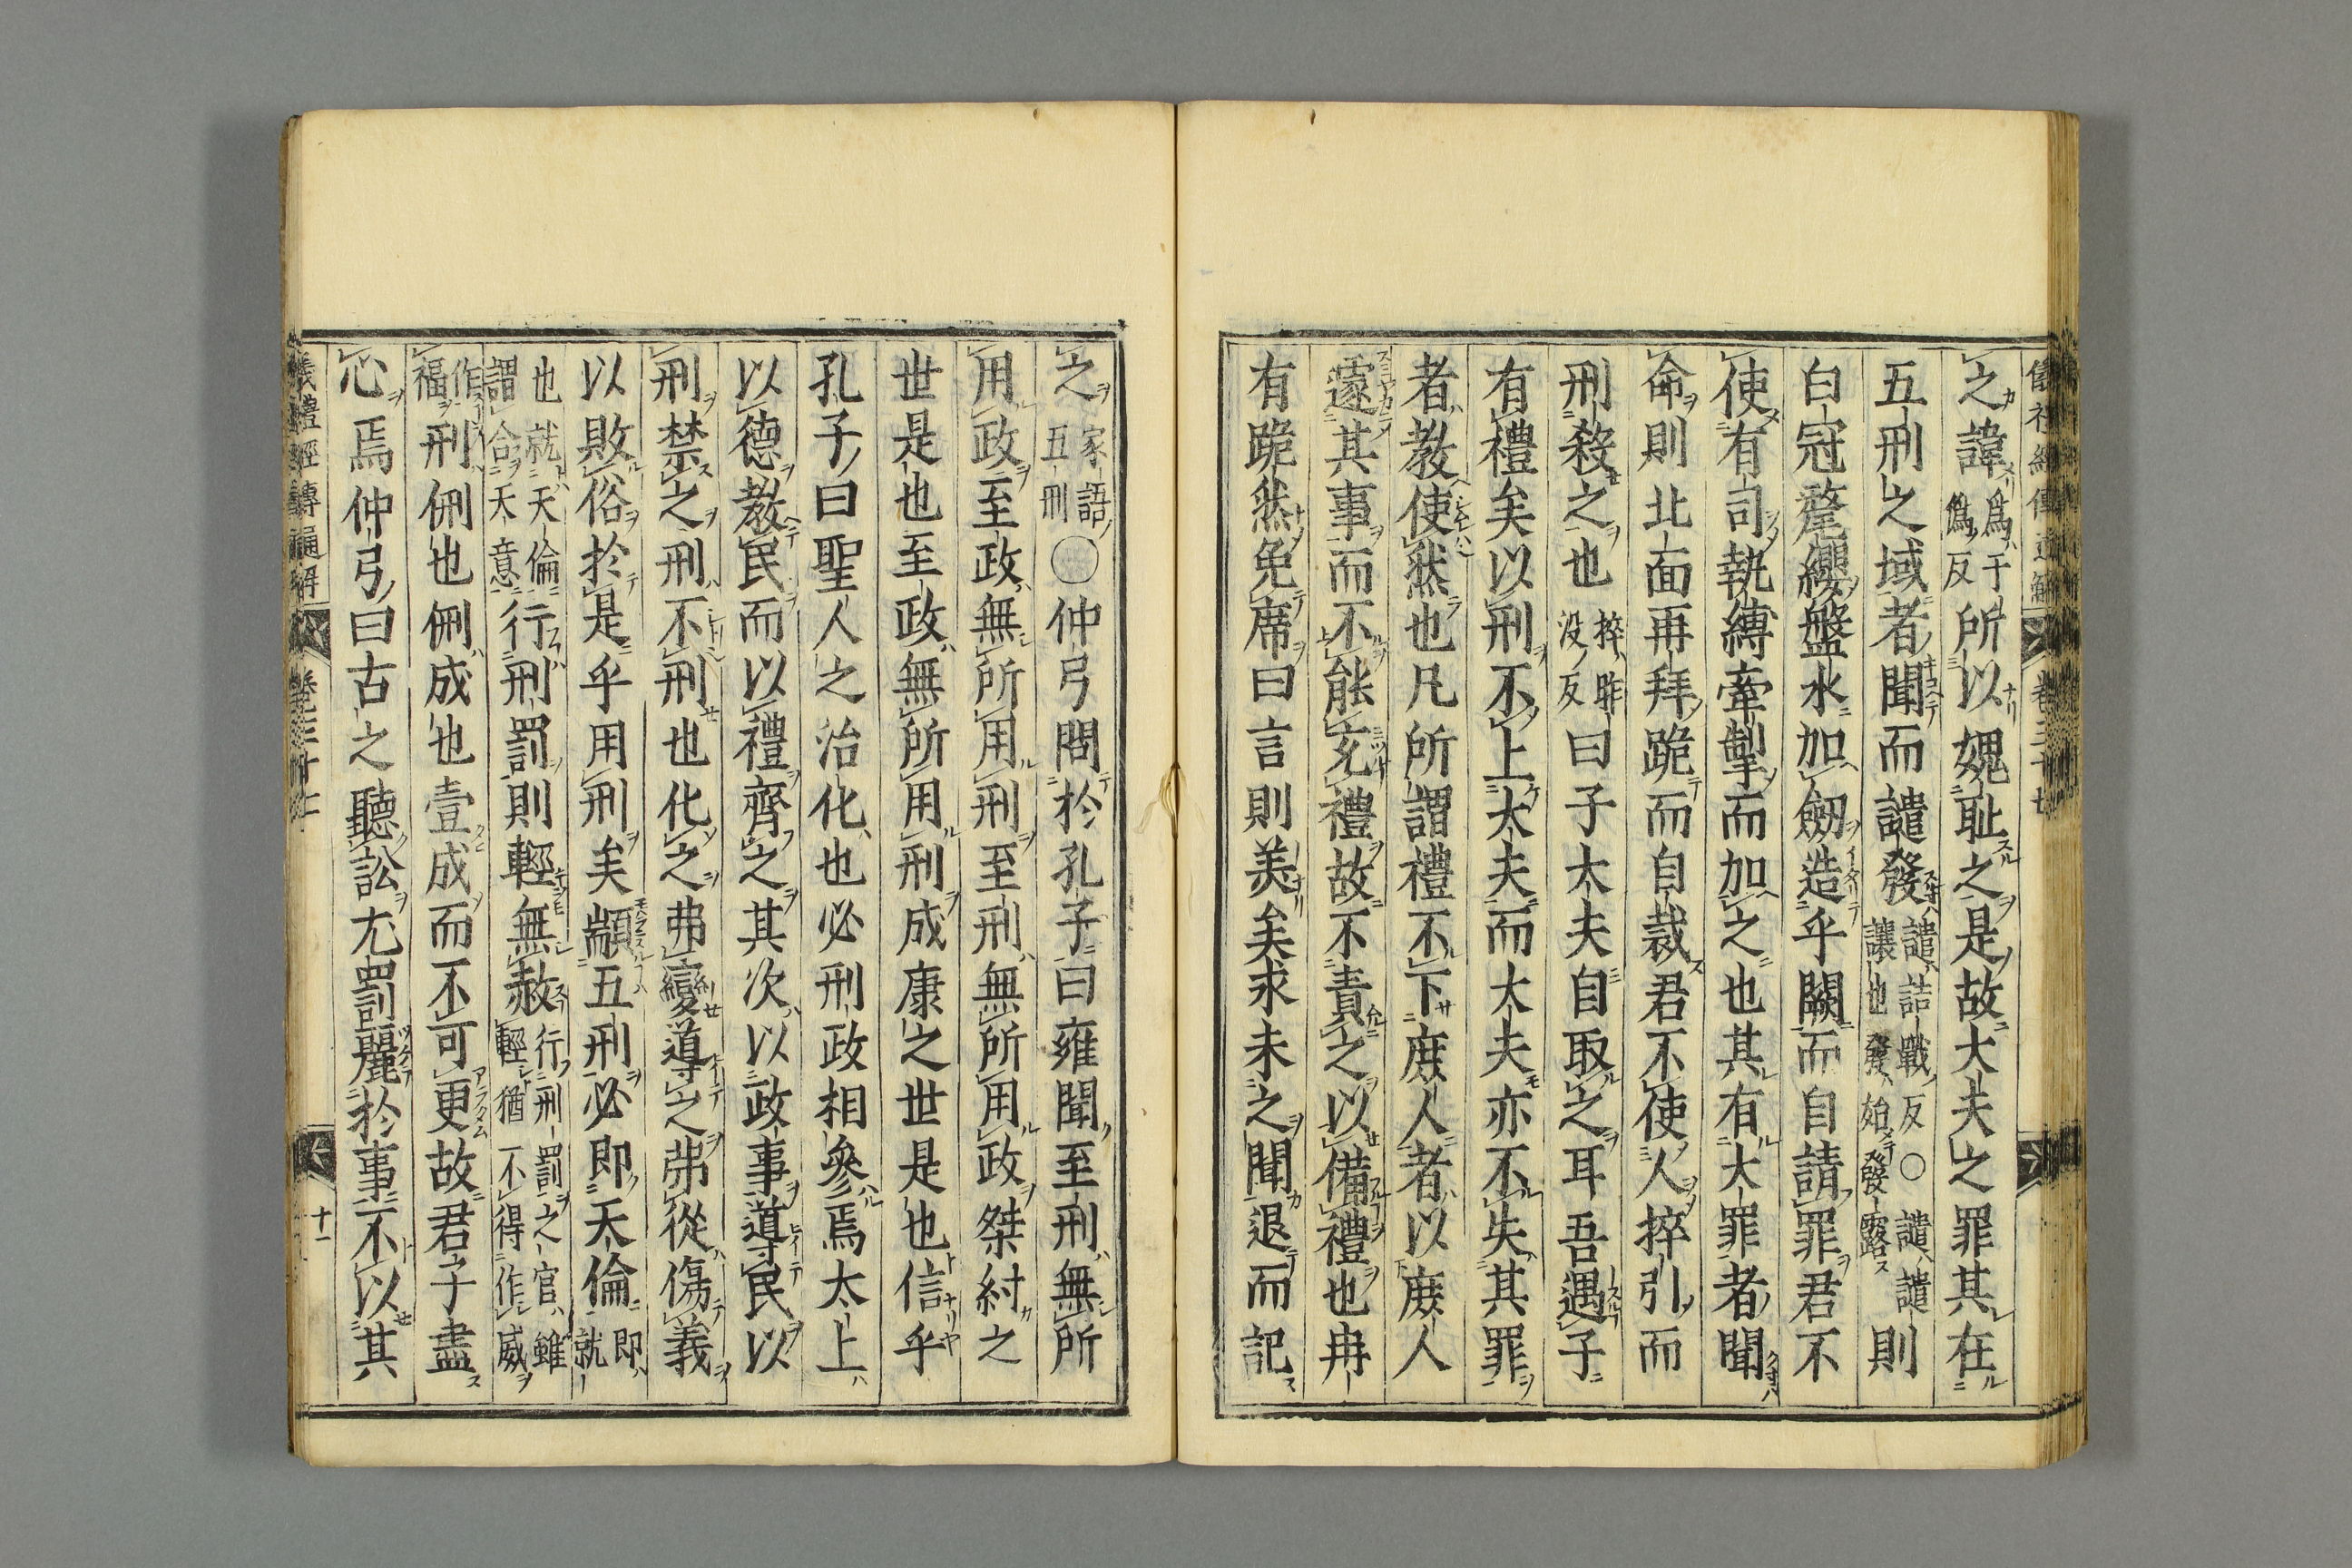 之諱爲于僞反所以媿耻之是故大夫之罪其在
五刑之域者聞而譴發譴詰戰反○譴譴讓也發始發露則
白冠氂纓盤水加劔造乎闕而自請罪君不
使有司執縛牽掣而加之也其有大罪者聞
命則北面再拜跪而自裁君不使人捽引而
刑殺之也捽昨没反曰子大夫自取之耳吾遇子
有禮矣以刑不上大夫而大夫亦不失其罪
者教使然也凡所謂禮不下庶人者以庶人
遽其事而不能充禮故不責之以備禮也冉
有跪然免席曰言則美矣求未之聞退而記
之家語五刑○仲弓問於孔子曰雍聞至刑無所
用政至政無所用刑至刑無所用政桀紂之
世是也至政無所用刑成康之世是也信乎
孔子曰聖人之治化也必刑政相參焉太上
以德教民而以禮齊之其次以政事導民以
刑禁之刑不刑也化之弗變導之弗從傷義
以敗俗於是乎用刑矣顓五刑必即天倫即就
也就天倫謂合天意行刑罰則輕無赦行刑罰之官雖輕猶不得作威
作福刑侀也侀成也壹成而不可更故君子盡
心焉仲弓曰古之聽訟尤罰麗於事不以其
儀禮經傳通解 卷三十七 十一